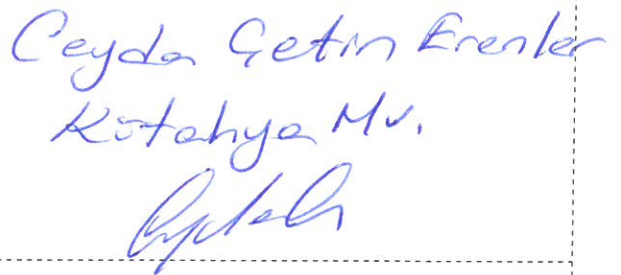 Ceyda Çetin Erenler
Kütahya Mv.